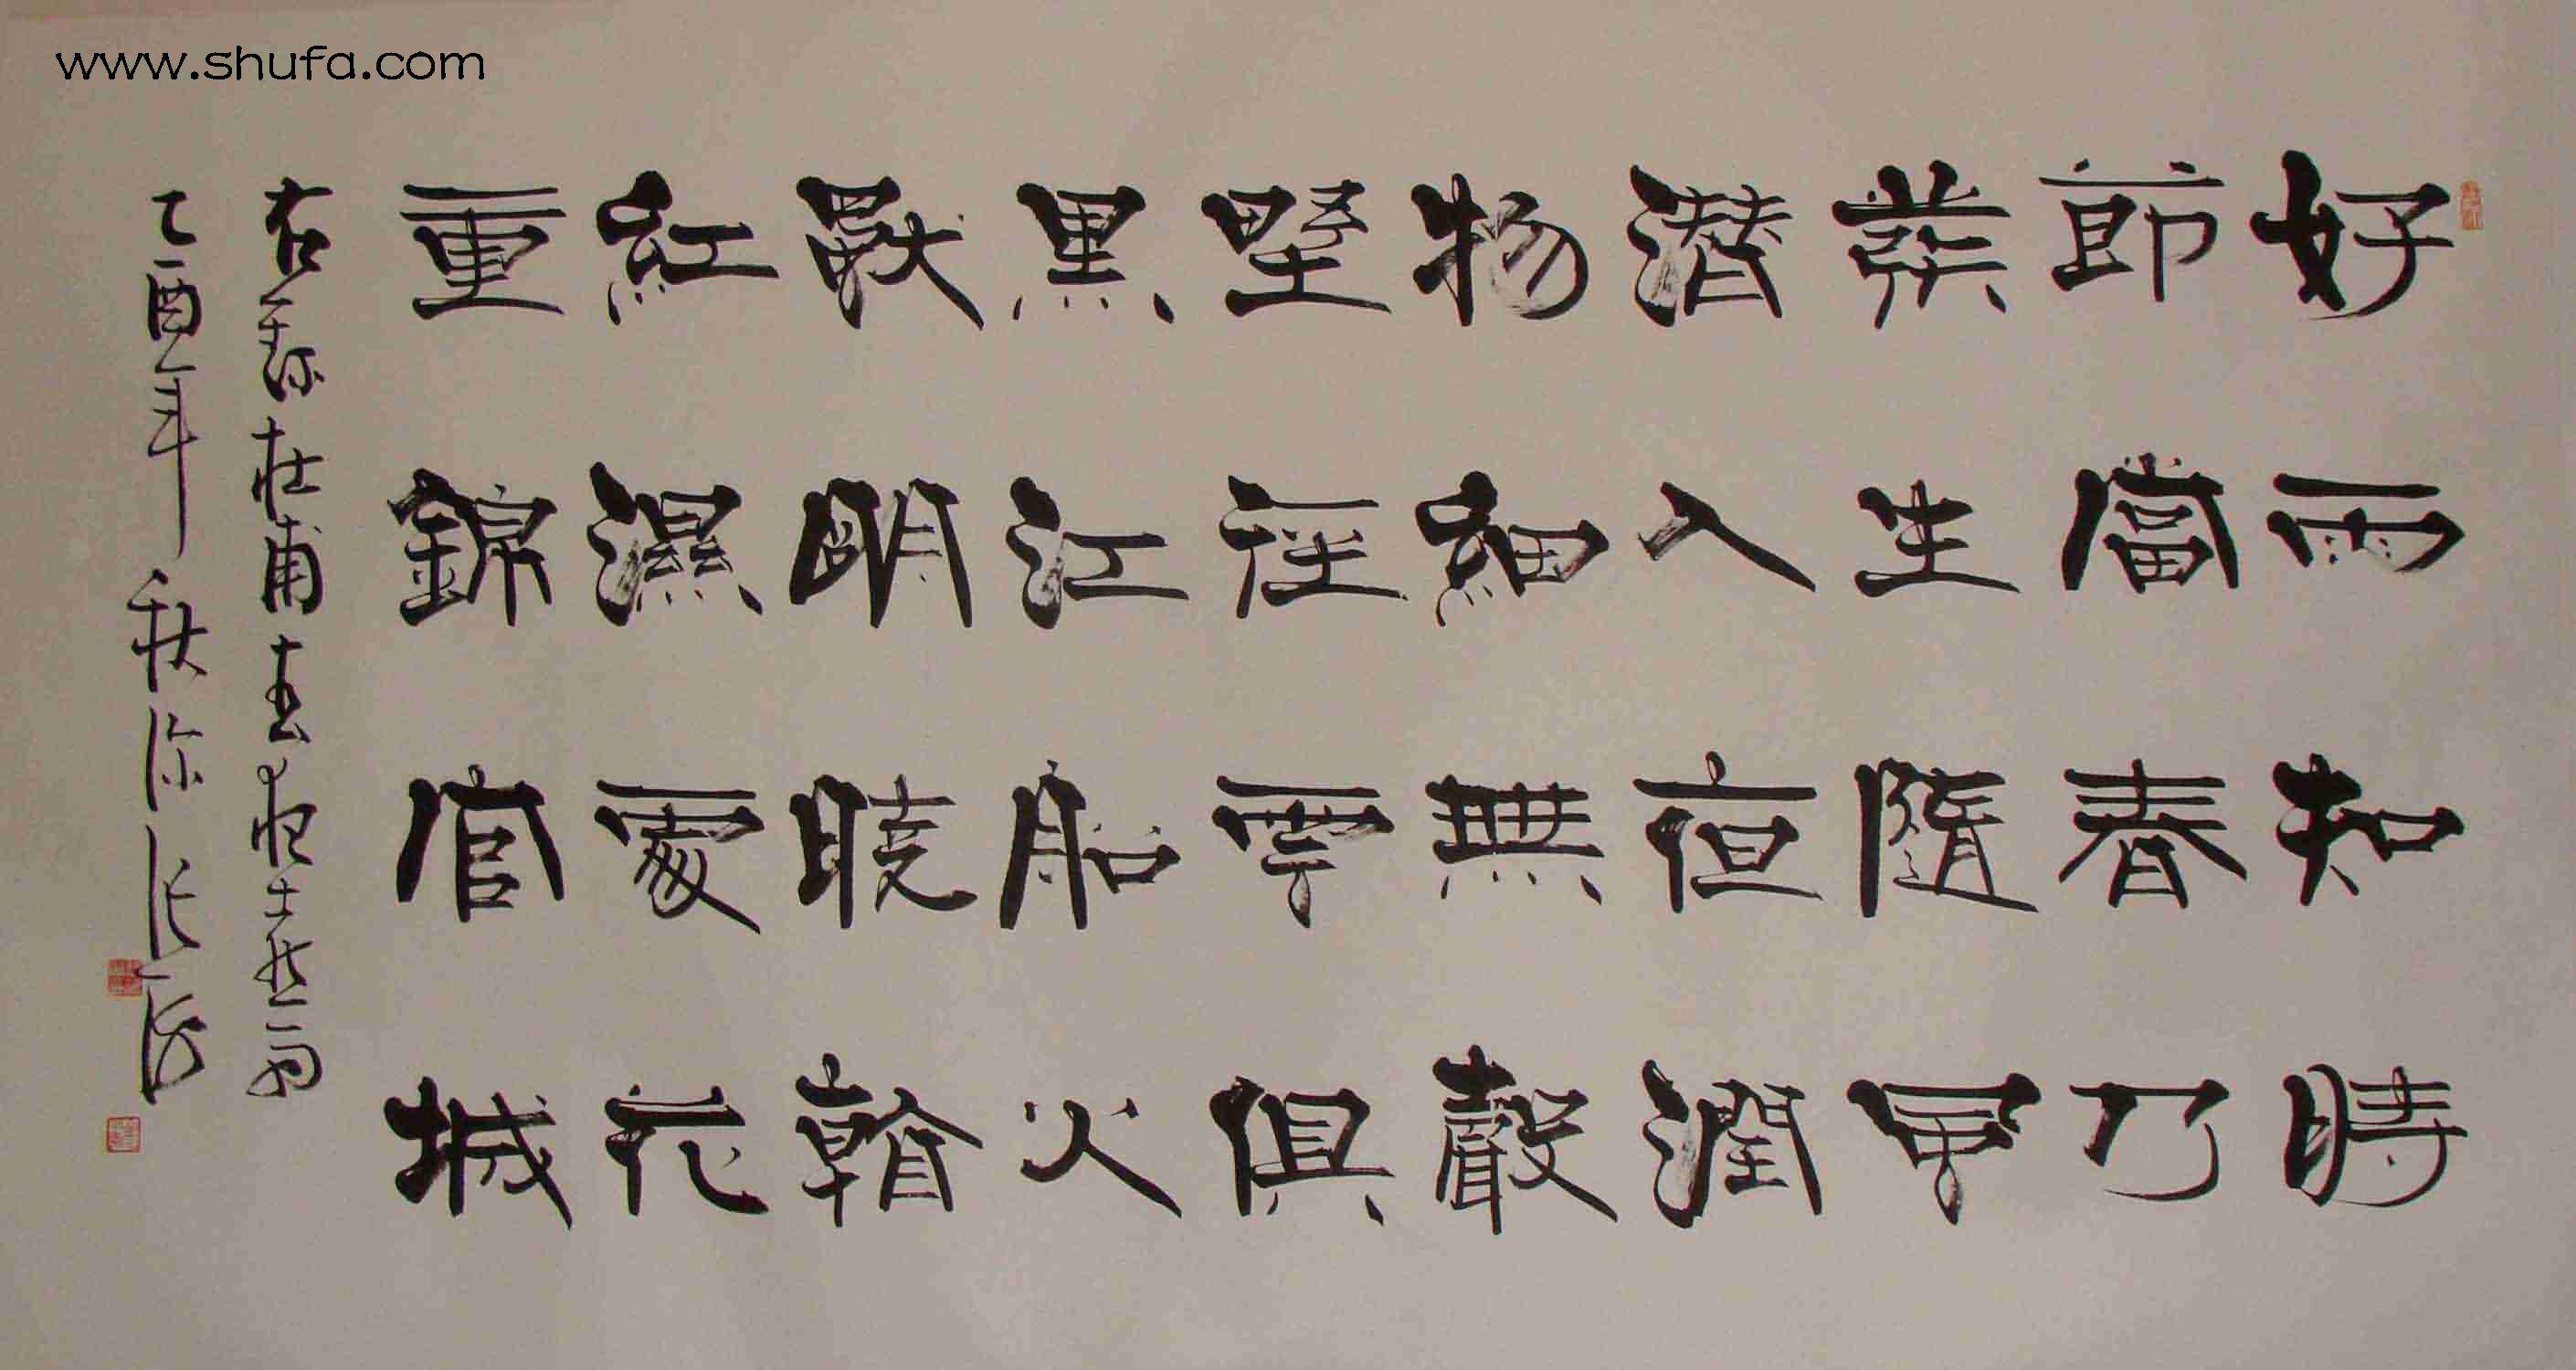 www.shufa.com
好雨知時
節當春乃
發生隨風
潛入夜潤
物細無聲
野徑雲俱
黑江船火
獨明曉看
紅濕處花
重錦官城
右錄杜甫春夜喜雨
乙酉年秋深